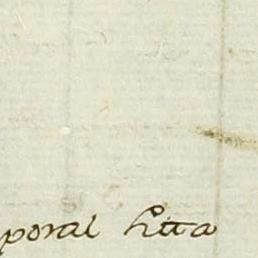 poral hitta